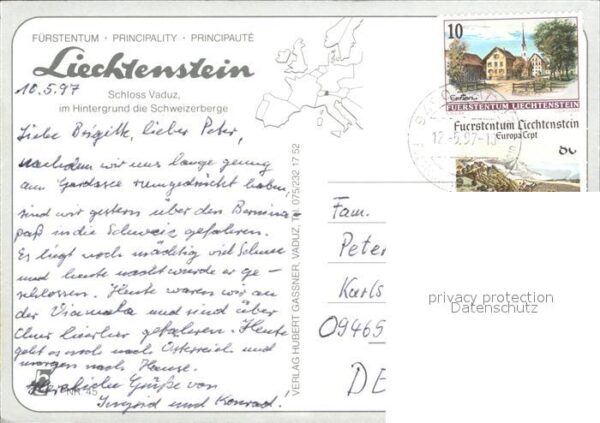 FÜRSTENTUM · PRINCIPALITY · PRINCIPAUTÉ
Liechtenstein
Schloss Vaduz,
im Hintergrund die Schweizerberge
10.5.97
Liebe Brigitte, lieber Peter,
nachdem wir uns lange genug
am Gardasee rumgedrückt haben,
sind wir gestern über den Bernina-
paß in die Schweiz gefahren.
Es liegt noch mächtig viel Schnee
und heute nacht wurde er ge-
schlossen. Heute waren wir an
der Viamala und sind über
Chur hierher gefahren. Heute
geht es noch nach Österreich und
morgen nach Hause.
Herzliche Grüße von
Ingrid und Konrad!
NR. 45
VERLAG HUBERT GASSNER, VADUZ, Tel. 075/232 17 52
10
FUERSTENTUM LIECHTENSTEIN
Fuerstentum Liechtenstein
Europa Cept
12.-5.97-1
Fam.
Peter
Karls
09465
DE
privacy protection
Datenschutz